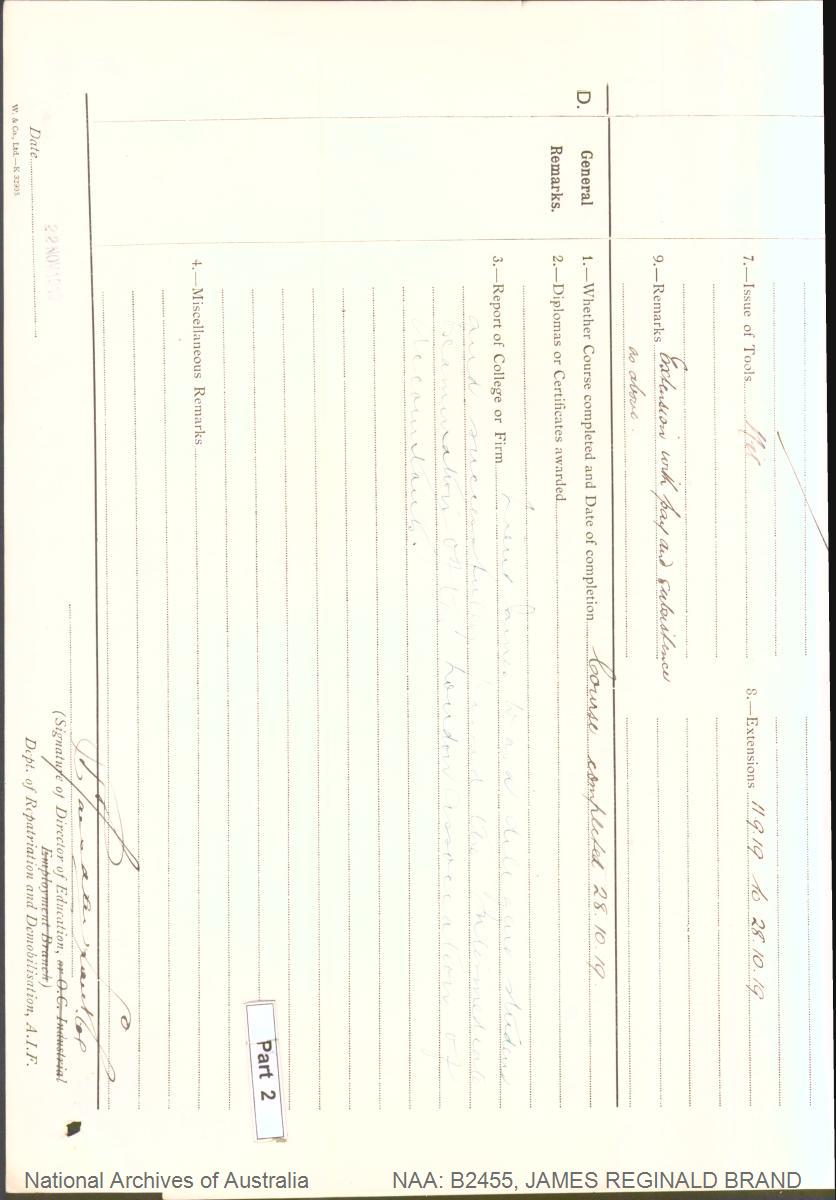 7.—Issue of Tools Nil
8.—Extensions 11.9.19 to 28.10.19
9.—Remarks Extension with pay and subsistence
as above.
D. General Remarks.
1.—Whether Course completed and Date of completion Course completed 28.10.19.
2.—Diplomas or Certificates awarded
3.—Report of College or Firm
and diligent student
and successfully the Intermediate
examination of the London Association of
Accountants.
4.—Miscellaneous Remarks
(Signature of Director of Education, or O.C. Industrial
Employment Branch)
Dept. of Repatriation and Demobilisation, A.I.F.
Date 22 NOV 1919
W. & Co., Ltd.—K 32903
Part 2
National Archives of Australia NAA: B2455, JAMES REGINALD BRAND